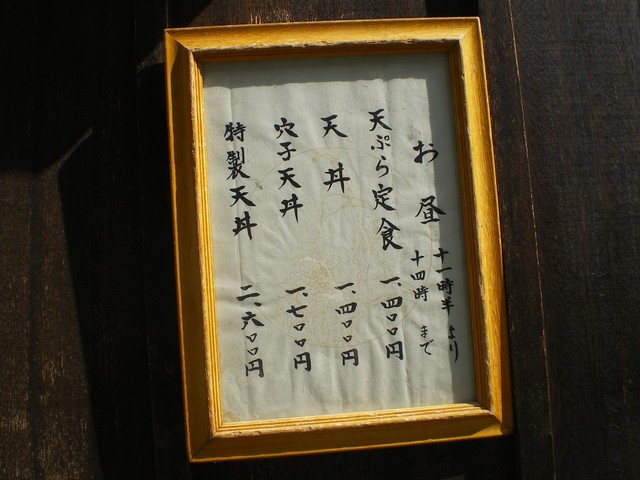 お昼
十一時半より
十四時まで
天ぷら定食 一、四〇〇円
天丼 一、四〇〇円
穴子天丼 一、七〇〇円
特製天丼 二、六〇〇円